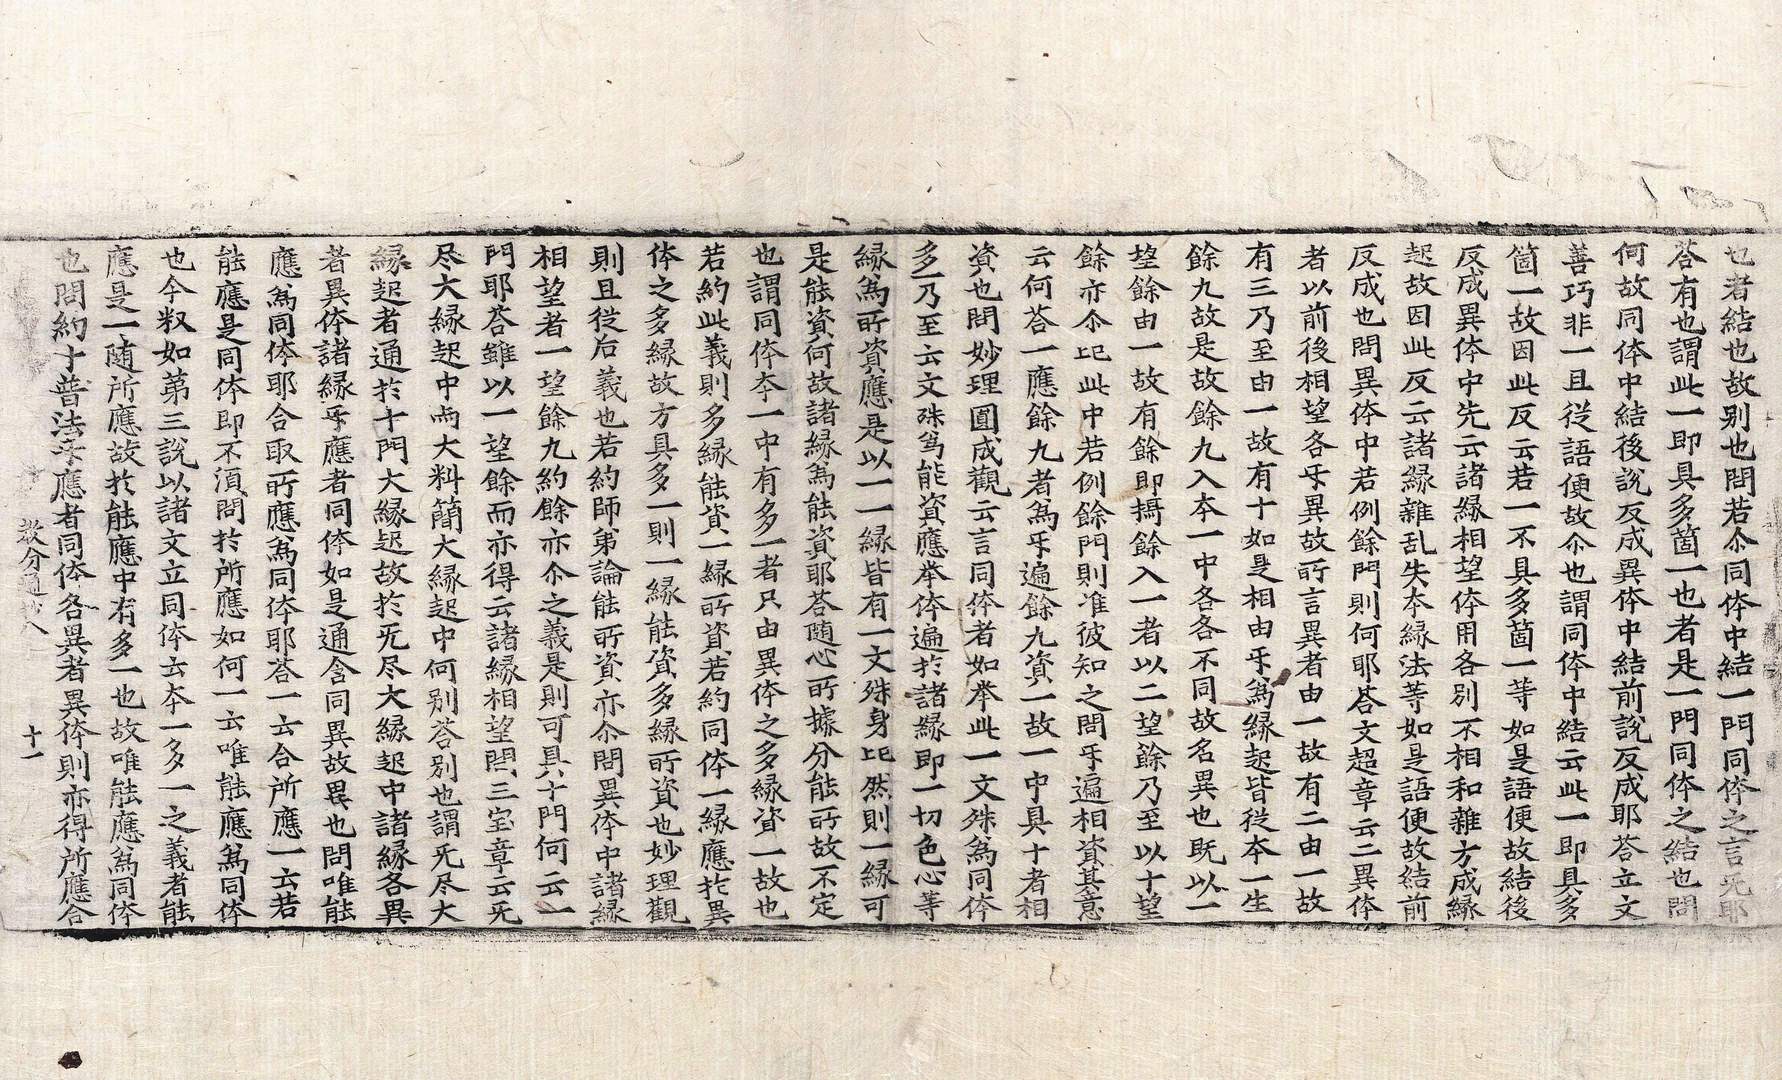 也者結也故别也問若尒同体中結一門同体之言旡耶
荅有也謂此一即具多箇一也者是一門同体之結也問
何故同体中結後說反成異体中結前說反成耶荅立文
善巧非一且從語便故尒也謂同体中結云此一即具多
箇一故因此反云若一不具多箇一等如是語便故結後
反成異体中先云諸緣相望体用各别不相和雜方成緣
起故因此反云諸緣雜乱失夲緣法等如是語便故結前
反成也問異体中若例餘門則何耶荅文超章云二異体
者以前後相望各㸦異故所言異者由一故有二由一故
有三乃至由一故有十如是相由㸦為緣起皆從夲一生
餘九故是故餘九入夲一中各各不同故名異也既以一
望餘由一故有餘即攝餘入一者以二望餘乃至以十望
餘亦尒比此中若例餘門則准彼知之問㸦遍相資其意
云何荅一應餘九者為㸦遍餘九資一故一中具十者相
資也問妙理圓成觀云言同体者如举此一文殊為同体
多一乃至云文殊為能資應举体遍於諸緣即一切色心等
緣為所資應是以一一緣皆有一文殊身比然則一緣可
是能資何故諸緣為能資耶荅随心所據分能所故不定
也謂同体夲一中有多一者只由異体之多緣資一故也
若約此義則多緣能資一緣所資若約同体一緣應於異
体之多緣故方具多一則一緣能資多緣所資也妙理觀
則且從后義也若約師弟論能所資亦尒問異体中諸緣
相望者一望餘九約餘亦尒之義是則可具十門何云一
門耶荅雖以一望餘而亦得云諸緣相望問三宝章云旡
尽大緣起中両大料簡大緣起中何别荅别也謂旡尽大
緣起者通於十門大緣起故於旡尽大緣起中諸緣各異
者異体諸緣㸦應者同体如是通含同異故異也問唯能
應為同体耶合取所應為同体耶荅一云合所應一云若
能應是同体即不湏問於所應如何一云唯能應為同体
也今㪽如第三說以諸文立同体云夲一多一之義者能
應是一随所應故於能應中有多一也故唯能應為同体
也問約十普法㸦應者同体各異者異体則亦得所應合
教分通抄八 十一